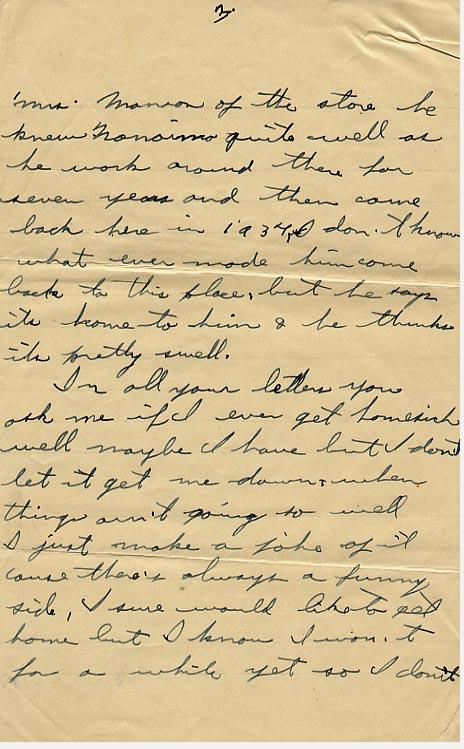 3.
Mrs. Manson of the store he
knew Nanaimo quite well as
he work around there for
seven years and then came
back here in 1934, I don't know
what ever made him come
back to this place, but he says
its home to him & he thinks
its pretty swell.
In all your letters you
ask me if I ever get homesick
well maybe I have but I don't
let it get me down, when
things ain't going so well
I just make a joke of it
cause there's always a funny
side, I sure would like to get
home but I know I won't
for a while yet so I don't